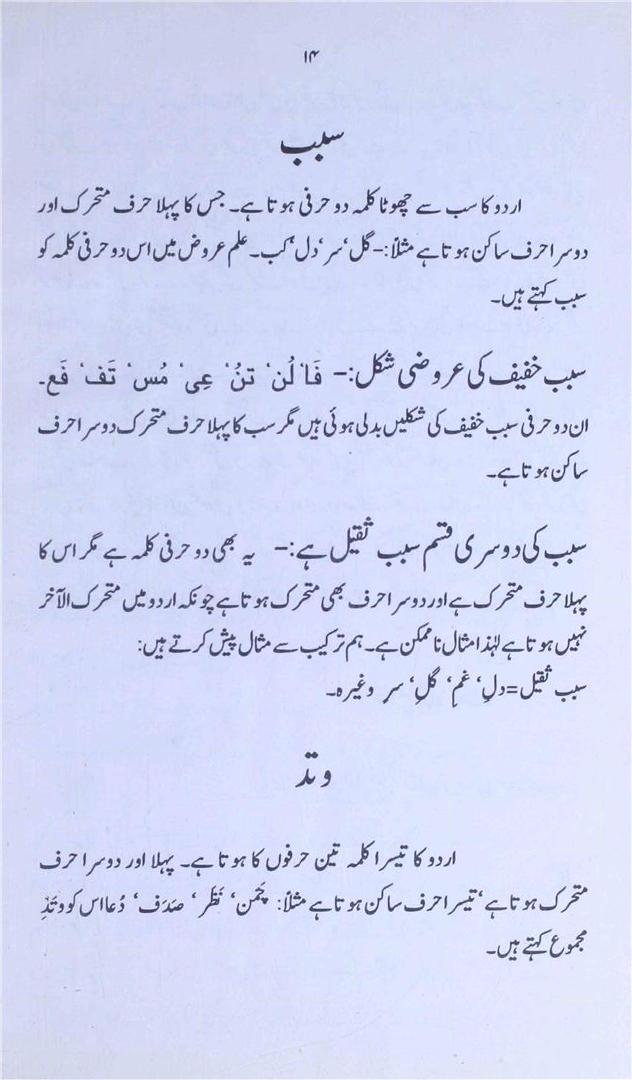 ۱۴
سبب
اردو کا سب سے چھوٹا کلمہ دو حرفی ہوتا ہے۔ جس کا پہلا حرف متحرک اور
دوسرا حرف ساکن ہوتا ہے مثلاً:- گل‘ سر‘ دل‘ کب۔ علم عروض میں اس دو حرفی کلمہ کو
سبب کہتے ہیں۔
سبب خفیف کی عروضی شکل:- فَا‘ لُن‘ تنُ‘ عِی‘ مُس‘ تَف‘ فَع۔
ان دو حرفی سبب خفیف کی شکلیں بدلی ہوئی ہیں مگر سب کا پہلا حرف متحرک دوسرا حرف
ساکن ہوتا ہے۔
سبب کی دوسری قسم سبب ثقیل ہے:- یہ بھی دو حرفی کلمہ ہے مگر اس کا
پہلا حرف متحرک ہے اور دوسرا حرف بھی متحرک ہوتا ہے چونکہ اردو میں متحرک الآخر
نہیں ہوتا ہے لہٰذا مثال ناممکن ہے۔ ہم ترکیب سے مثال پیش کرتے ہیں:
سبب ثقیل=دلِ‘ غمِ‘ گلِ‘ سرِ وغیرہ۔
وتد
اردو کا تیسرا کلمہ تین حرفوں کا ہوتا ہے۔ پہلا اور دوسرا حرف
متحرک ہوتا ہے‘ تیسرا حرف ساکن ہوتا ہے مثلاً: چَمن‘ نَظر‘ صدَف‘ دُعا اس کو وتَدِ
مجموع کہتے ہیں۔